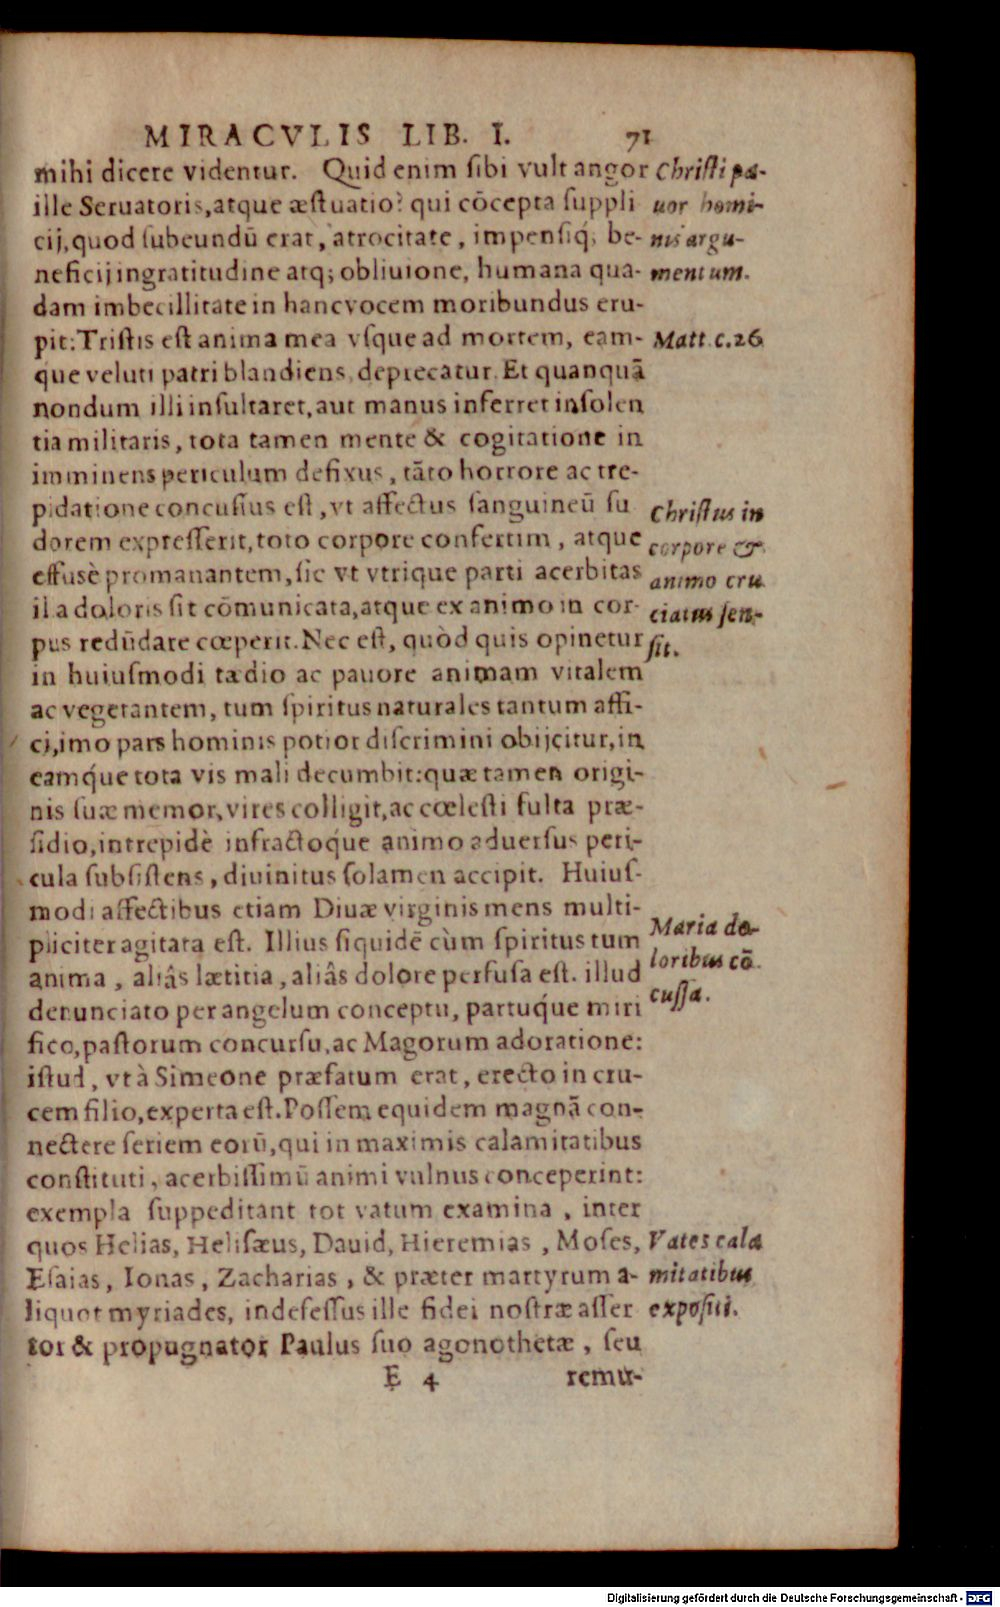 MIRACVLIS LIB. I. 71
mihi dicere videntur. Quid enim ſibi vult angor
ille Seruatoris, atque æſtuatio? qui cōcepta ſuppli
cij, quod ſubeundū erat, atrocitate, impenſiq́; be-
neficij ingratitudine atq; obliuione, humana qua-
dam imbecillitate in hanc vocem moribundus eru-
pit: Triſtis eſt anima mea vſque ad mortem, eam-
que veluti patri blandiens, deprecatur. Et quanquā
nondum illi inſultaret, aut manus inferret inſolen
tia militaris, tota tamen mente & cogitatione in
imminens periculum defixus, tāto horrore ac tre-
pidatione concuſſus eſt, vt affectus ſanguineū ſu
dorem expreſſerit, toto corpore confertim, atque
effusè promanantem, ſic vt vtrique parti acerbitas
illa doloris ſit cōmunicata, atque ex animo in cor-
pus redūdare cœperit. Nec eſt, quòd quis opinetur
in huiuſmodi tædio ac pauore animam vitalem
ac vegetantem, tum ſpiritus naturales tantum affi-
ci, imo pars hominis potior diſcrimini obijcitur, in
eamq́ue tota vis mali decumbit: quæ tamen origi-
nis ſuæ memor, vires colligit, ac cœleſti fulta præ-
ſidio, intrepidè infractoq́ue animo aduerſus peri-
cula ſubſiſtens, diuinitus ſolamen accipit. Huiuſ-
modi affectibus etiam Diuæ virginis mens multi-
pliciter agitata eſt. Illius ſiquidē cùm ſpiritus tum
anima, aliâs lætitia, aliâs dolore perfuſa eſt. illud
denunciato per angelum conceptu, partuq́ue miri
fico, paſtorum concurſu, ac Magorum adoratione:
iſtud, vt à Simeone præfatum erat, erecto in cru-
cem filio, experta eſt. Poſſem equidem magnā con-
nectere ſeriem eorū, qui in maximis calamitatibus
conſtituti, acerbiſſimū animi vulnus conceperint:
exempla ſuppeditant tot vatum examina, inter
quos Helias, Heliſæus, Dauid, Hieremias, Moſes,
Eſaias, Ionas, Zacharias, & præter martyrum a-
liquot myriades, indefeſſus ille fidei noſtræ aſſer
tor & propugnator Paulus ſuo agonothetæ, ſeu
E 4 remu-
Chriſti pa-
uor homi-
nis argu-
mentum.
Matt. c. 26
Chriſtus in
corpore &
animo cru
ciatus ſen-
ſit.
Maria do-
loribus cō
cuſſa.
Vates cala
mitatibus
expoſiti.
Digitalisierung gefördert durch die Deutsche Forschungsgemeinschaft - DFG